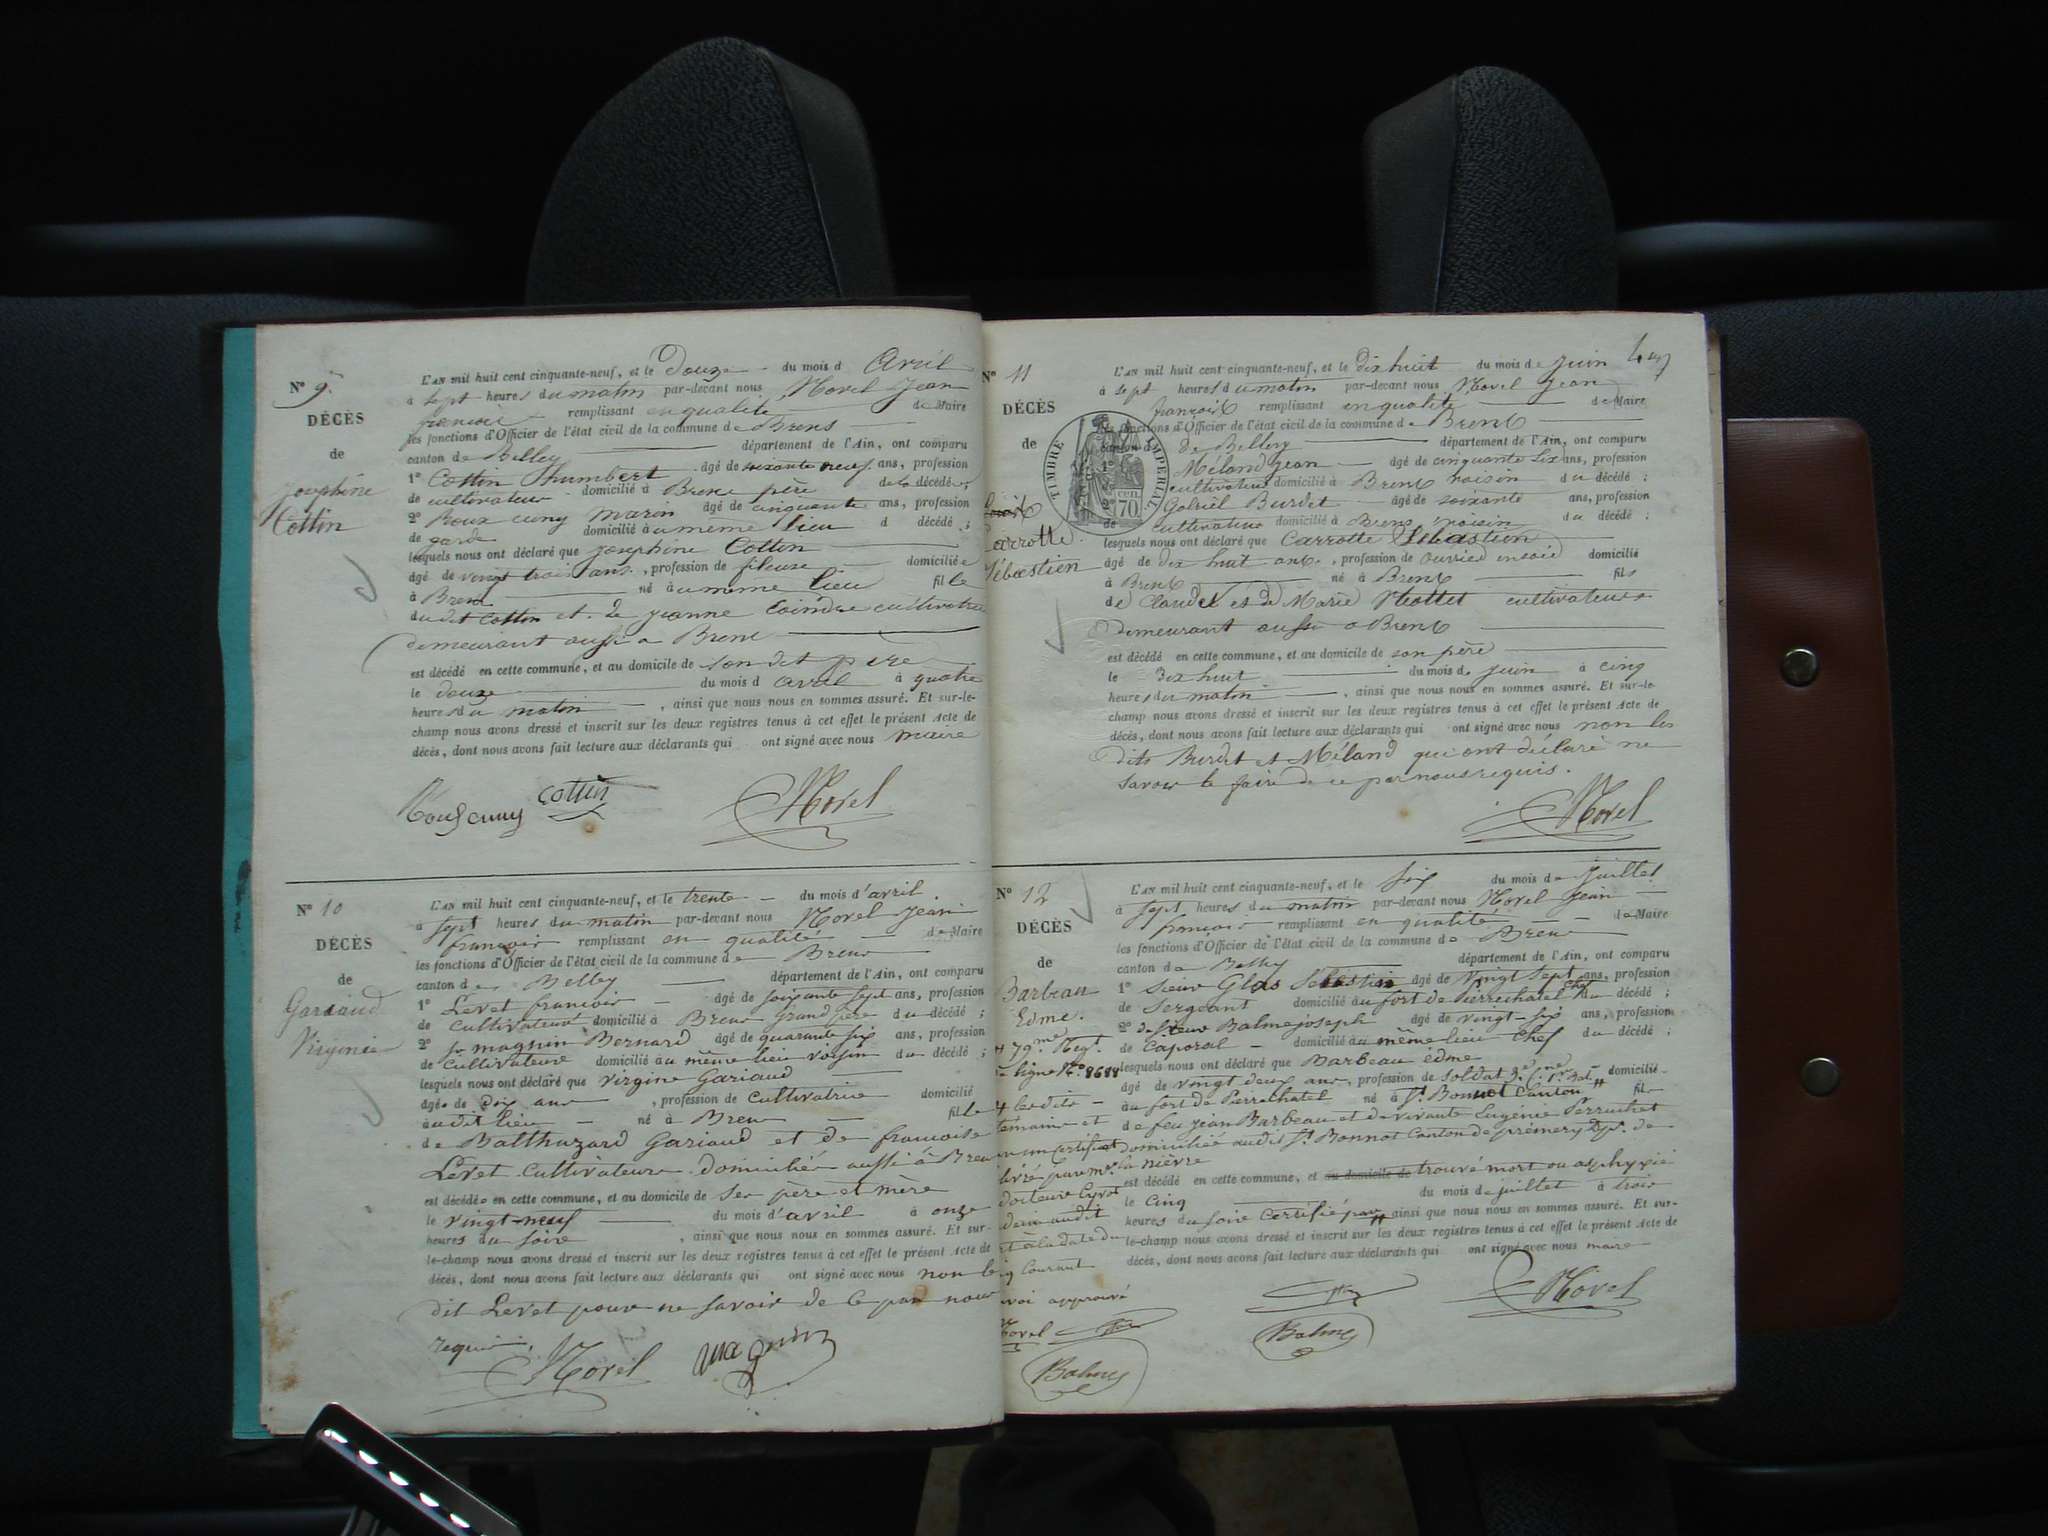 N° 9.
DÉCÈS
de
Joséphine
Cottin
L'AN mil huit cent cinquante-neuf, et le Douze du mois d Avril
à sept heures du matin par-devant nous Morel Jean
francois remplissant en qualité de Maire
les fonctions d'Officier de l'état civil de la commune de Brens
canton de Belley département de l'Ain, ont comparu
1° Cottin humbert âgé de soixante neuf ans, profession
de cultivateur domicilié à Brens père de la décédée;
2° Roux cuny Maron âgé de cinquante ans, profession
de garde domicilié à u même lieu d décédé;
lesquels nous ont déclaré que Josephine Cottin
âgé de vingt trois ans, profession de fileuse domiciliée
à Brens né à u même lieu fille
du dit Cottin et de jeanne Cointre
demeurant aussi a Brens
est décédé en cette commune, et au domicile de son dit père
le douze du mois d avril à quatre
heures du matin, ainsi que nous nous en sommes assuré. Et sur-le-
champ nous avons dressé et inscrit sur les deux registres tenus à cet effet le présent Acte de
décès, dont nous avons fait lecture aux déclarants qui ont signé avec nous maire
Rouxcuny Cottin Morel
N° 10
DÉCÈS
de
Gariaud
Virginie
L'AN mil huit cent cinquante-neuf, et le trente du mois d'avril
à sept heures du matin par-devant nous Morel Jean
francois remplissant en qualité de Maire
les fonctions d'Officier de l'état civil de la commune de Brens
canton de Belley département de l'Ain, ont comparu
1° Levet francois âgé de soixante sept ans, profession
de cultivateur domicilié à Brens grand père du décédé;
2° magnin Bernard âgé de quarante six ans, profession
de cultivateur domicilié au même lieu voisin du décédé;
lesquels nous ont déclaré que virgine Gariaud
âgée de dix ans, profession de cultivatrice domicilié
au dit lieu né à Brens fille
de Balthazard Gariaud et de francoise
Levet cultivateurs domiciliés aussi à Brens
est décédée en cette commune, et au domicile de ses père et mère
le vingt-neuf du mois d'avril à onze
heures du soire, ainsi que nous nous en sommes assuré. Et sur-
le-champ nous avons dressé et inscrit sur les deux registres tenus à cet effet le présent Acte de
décès, dont nous avons fait lecture aux déclarants qui ont signé avec nous non le
dit Levet pour ne savoir de ce par nous
requis.
Morel magnin
N° 11
DÉCÈS
de
Carrotte
Sébastien
TIMBRE IMPÉRIAL
70 cen.
L'AN mil huit cent cinquante-neuf, et le dix huit du mois de juin
à sept heures du matin par-devant nous Morel Jean
françois remplissant en qualité de Maire
les fonctions d'Officier de l'état civil de la commune de Brens
canton d de Belley département de l'Ain, ont comparu
1° Méland jean âgé de cinquante six ans, profession
cultivateur domicilié à Brens voisin du décédé;
2° Gabriel Burdet âgé de soixante ans, profession
de cultivateur domicilié à Brens voisin du décédé;
lesquels nous ont déclaré que Carrotte Sébastien
âgé de dix huit ans, profession de ouvrier domicilié
à Brens né à Brens fils
de Claude et de Marie Mottet cultivateurs
demeurant aussi a Brens
est décédé en cette commune, et au domicile de son père
le Dix huit du mois de juin à cinq
heures du matin, ainsi que nous nous en sommes assuré. Et sur-le
champ nous avons dressé et inscrit sur les deux registres tenus à cet effet le présent Acte de
décès, dont nous avons fait lecture aux déclarants qui ont signé avec nous non les
dits Burdet et Méland qui ont déclaré ne
savoir le faire de ce par nous requis.
Morel
N° 12
DÉCÈS
de
Barbeau
Edme.
79me Regt.
ligne No. 8688
L'AN mil huit cent cinquante-neuf, et le six du mois de juillet
à sept heures du matin par-devant nous Morel Jean
françois remplissant en qualité de Maire
les fonctions d'Officier de l'état civil de la commune de Brens
canton de Belley département de l'Ain, ont comparu
1° Sieur Glas Sébastien âgé de Vingt Sept ans, profession
de Sergeant domicilié au fort de Pierrechatel Chef du décédé;
2° Sieur Balme joseph âgé de vingt-six ans, profession
de Caporal domicilié au même lieu Chef du décédé;
lesquels nous ont déclaré que Barbeau édme
âgé de vingt deux ans, profession de soldat domicilié
au fort de Pierrechatel né à St. Bonnot Canton fil
de feu jean Barbeau et de vivante Eugénie Perruchet
Domiciliée audit St. Bonnot Canton de prémery Dpt. de
la nièvre
est décédé en cette commune, et au domicile de trouvé mort ou asphyxié
le Cinq du mois de juillet à trois
heures du soire Certifié par ainsi que nous nous en sommes assuré. Et sur-
le-champ nous avons dressé et inscrit sur les deux registres tenus à cet effet le présent Acte de
décès, dont nous avons fait lecture aux déclarants qui ont signé avec nous maire
un certificat
docteur Cyrot
à la date du
Courant
approuvé
Morel
Balme
Balme
Morel